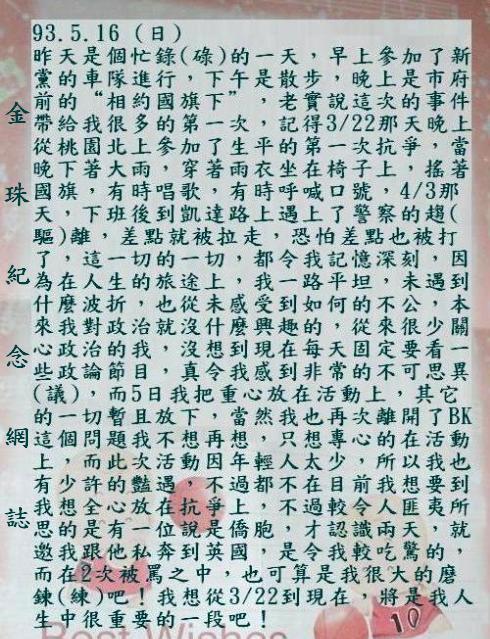 93.5.16 (日)
昨天是個忙錄(碌)的一天，早上參加了新
黨的車隊進行，下午是散步，晚上是市府
前的“相約國旗下”，老實說這次的事件
帶給我很多的第一次，記得3/22那天晚上
從桃園北上參加了生平的第一次抗爭，當
晚下著大雨，穿著雨衣坐在椅子上，搖著
國旗，有時唱歌，有時呼喊口號，4/3那
天，下班後到凱達路上遇上了警察的趨(
驅)離，差點就被拉走，恐怕差點也被打
了，這一切的一切，都令我記憶深刻，因
為在人生的旅途上，我一路平坦，未遇到
什麼波折，也從未感受到如何的不公，本
來我對政治就沒什麼興趣的，從來很少關
心政治的我，沒想到現在每天固定要看一
些政論節目，真令我感到非常的不可思異
(議)，而5日我把重心放在活動上，其它
的一切暫且放下，當然我也再次離開了BK
這個問題我不想再想，只想專心的在活動
上，而此次活動因年輕人太少，所以我也
有少許的豔遇，不過都不在目前我想要到
我想全心放在抗爭上，不過較令人匪夷所
思的是有一位說是僑胞，才認識兩天，就
邀我跟他私奔到英國，是令我較吃驚的，
而在2次被罵之中，也可算是我很大的磨
鍊(練)吧！我想從3/22到現在，將是我人
生中很重要的一段吧！
金珠紀念網誌
Best Wishes
10